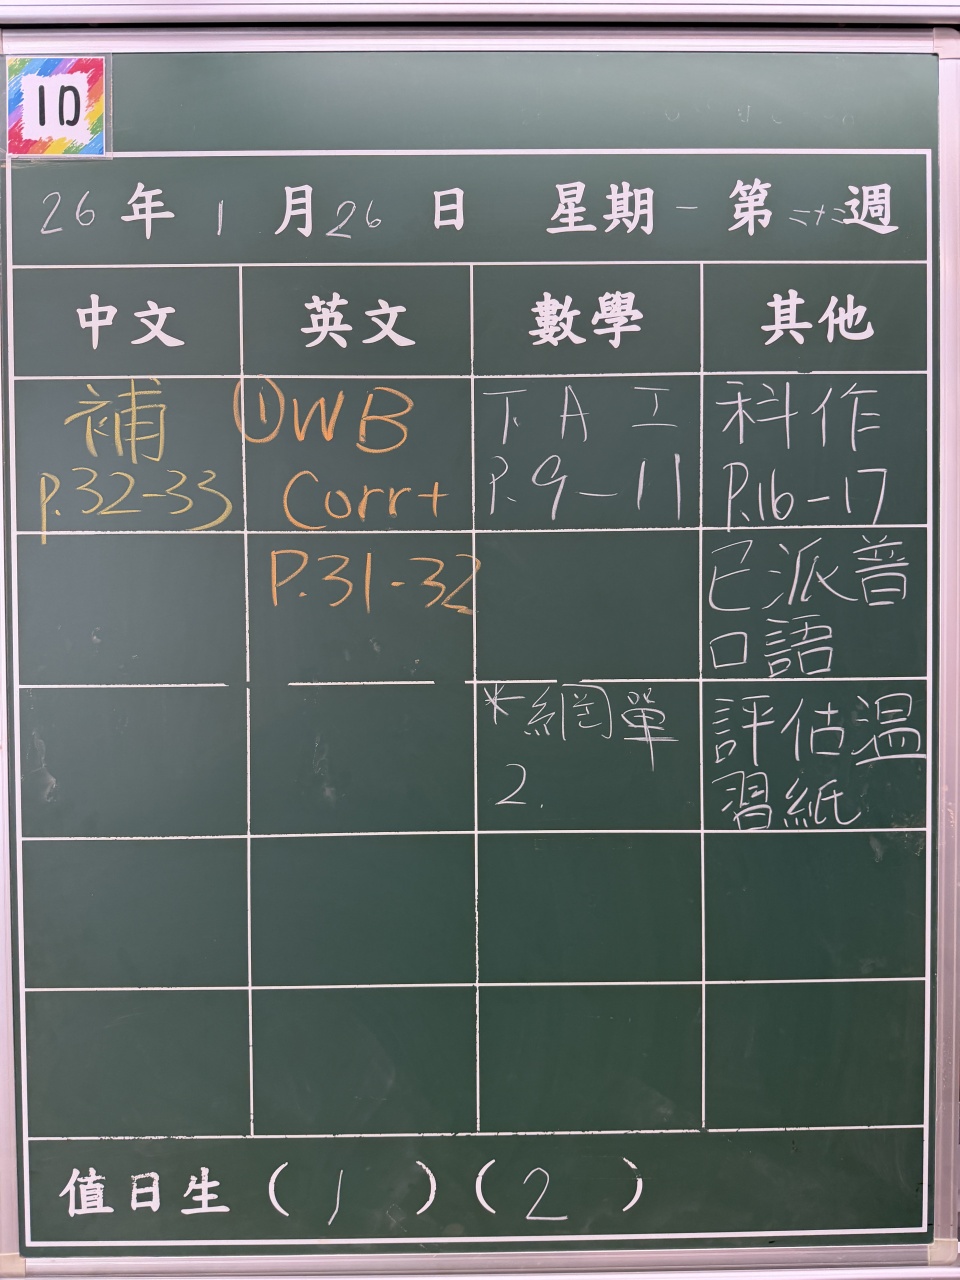 1D
26年1月26日 星期一 第二十二週
中文 英文 數學 其他
補
P.32-33
①WB
Corr+
P.31-32
下A工
P.9-11
*網單
2.
科作
P.16-17
已派普
口語
評估温
習紙
值日生(1)(2)